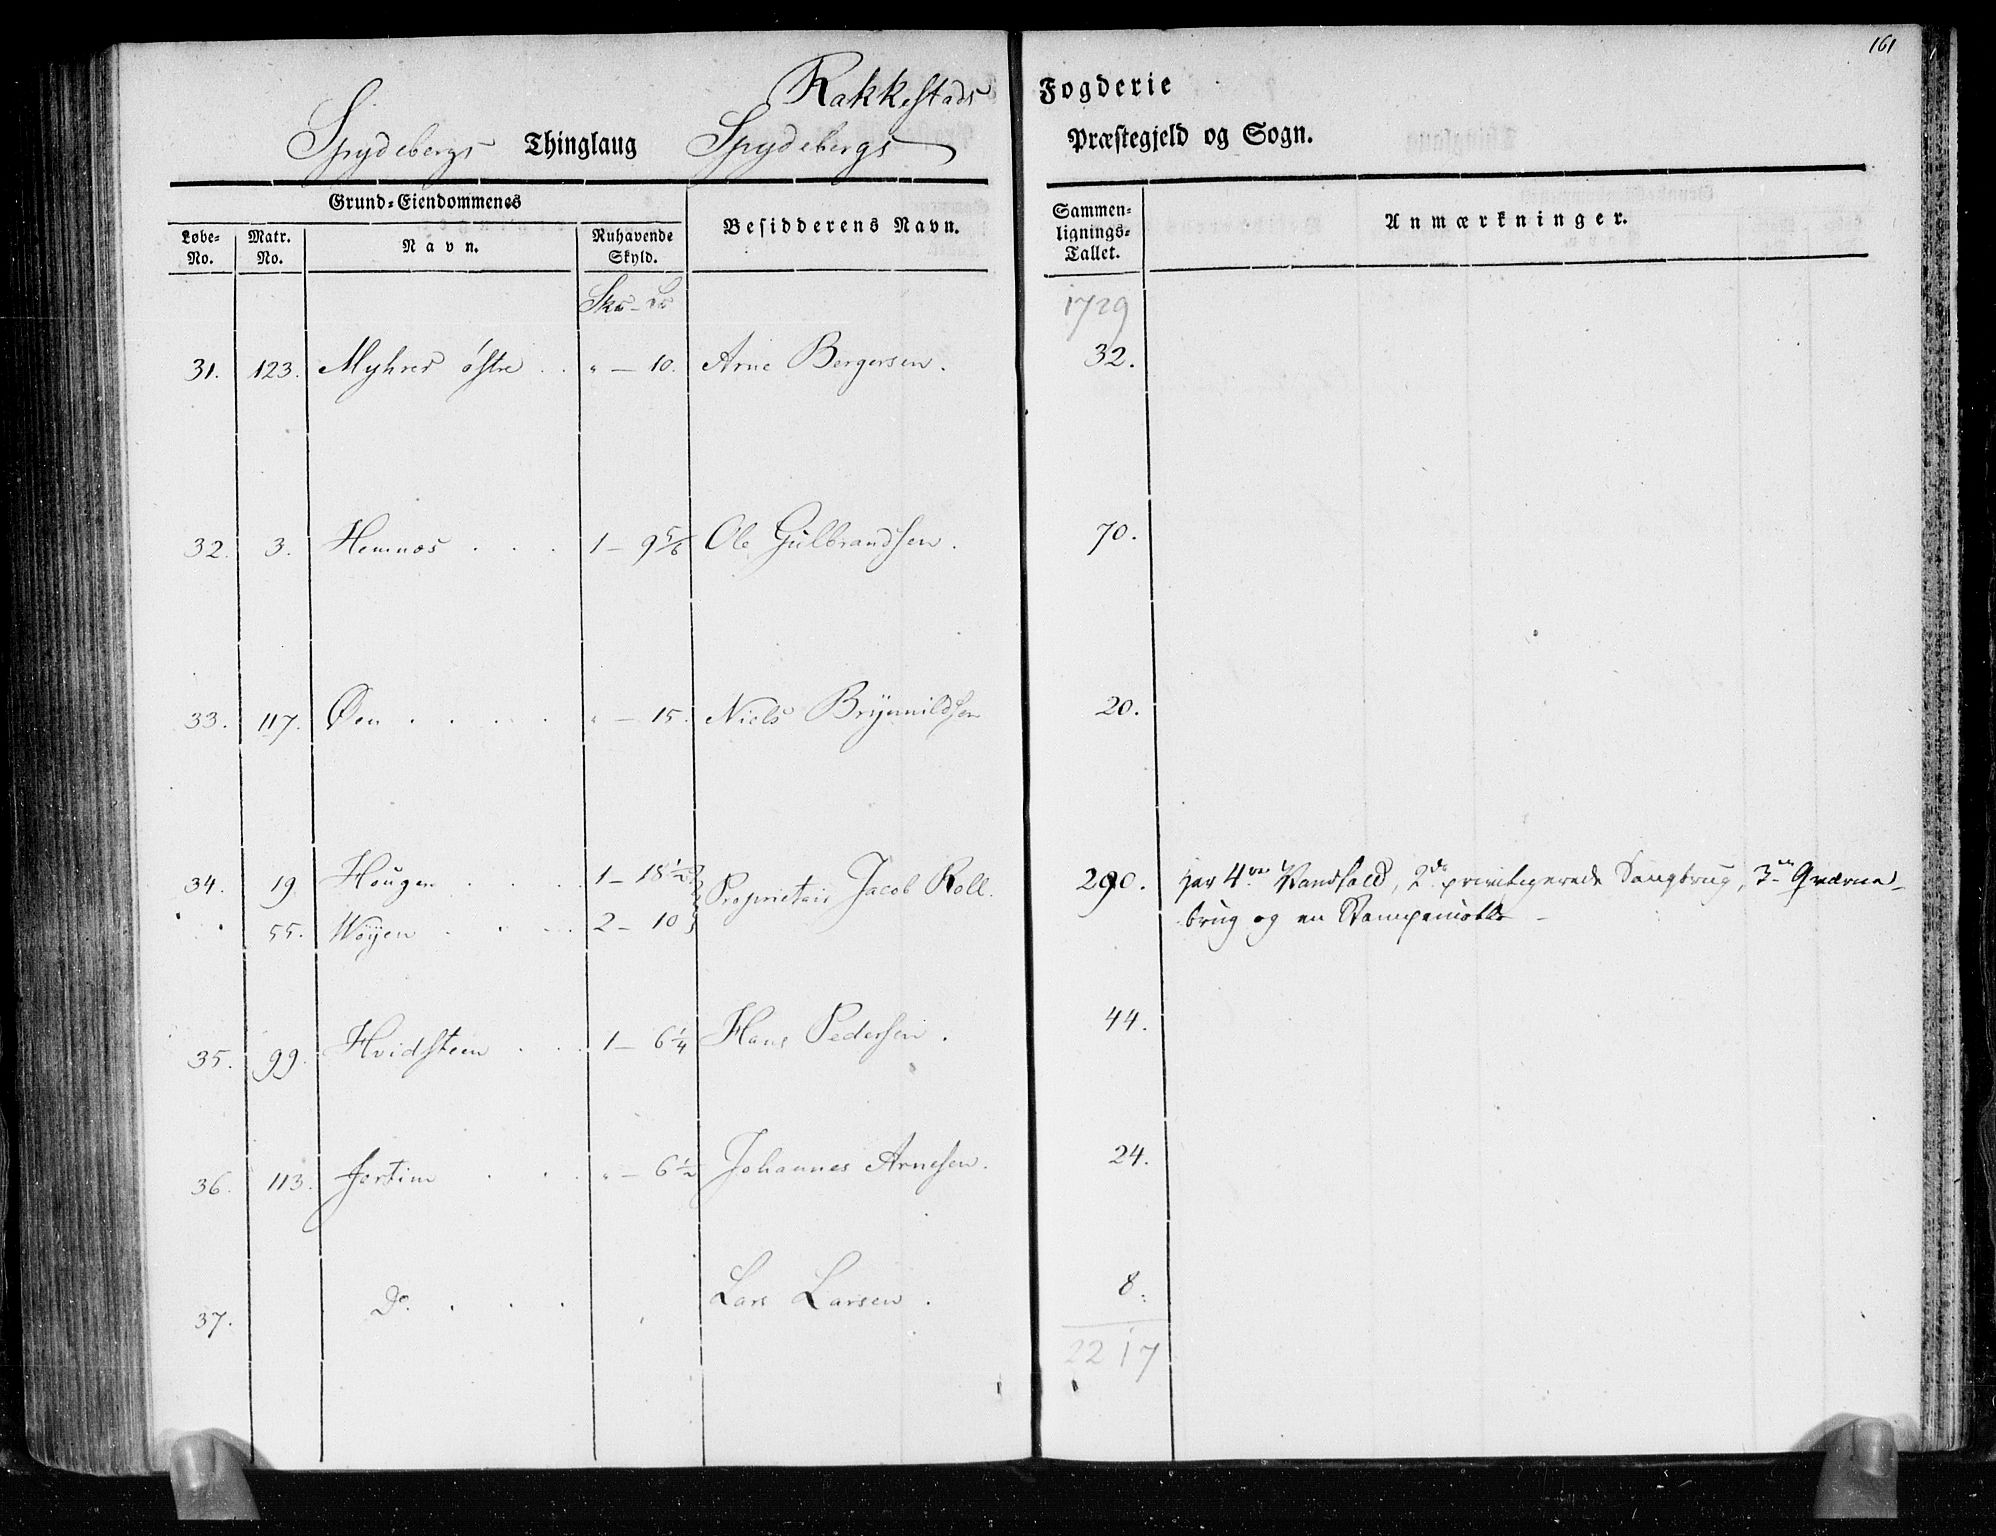 161
Rakkestads Fogderie
Spydebergs Thinglaug Spydebergs Præstegjeld og Sogn.
Grund-Eiendommenes
Løbe-No. Matr. No. Navn. Nuhavende Skyld. Besidderens Navn. Sammenlignings-Tallet. Anmærkninger.
1729
31. 123. Myhrer østre . . " — 10. Arne Bergersen. 32.
32. 3. Hemnæs . . . 1 — 9 5/6 Ole Gulbrandsen. 70.
33. 117. Øen . . . . " — 15. Niels Brynnildsen 20.
34. 19. Hougen . . . 1 — 18 1/2 Proprietair Jacob Roll. 290. har 4re Vandfald, 2de privilegerede Saugbrug, 3de Qværne-
55. Wøyen . . . 2 — 10 brug og en Stampemølle —
35. 99. Hvidsteen . . 1 — 6 1/4 Hans Pedersen. 44.
36. 113. Fortim . . " — 6 1/2 Johannes Arnesen. 24.
37. Do. . . . Lars Larsen. 8.
2217